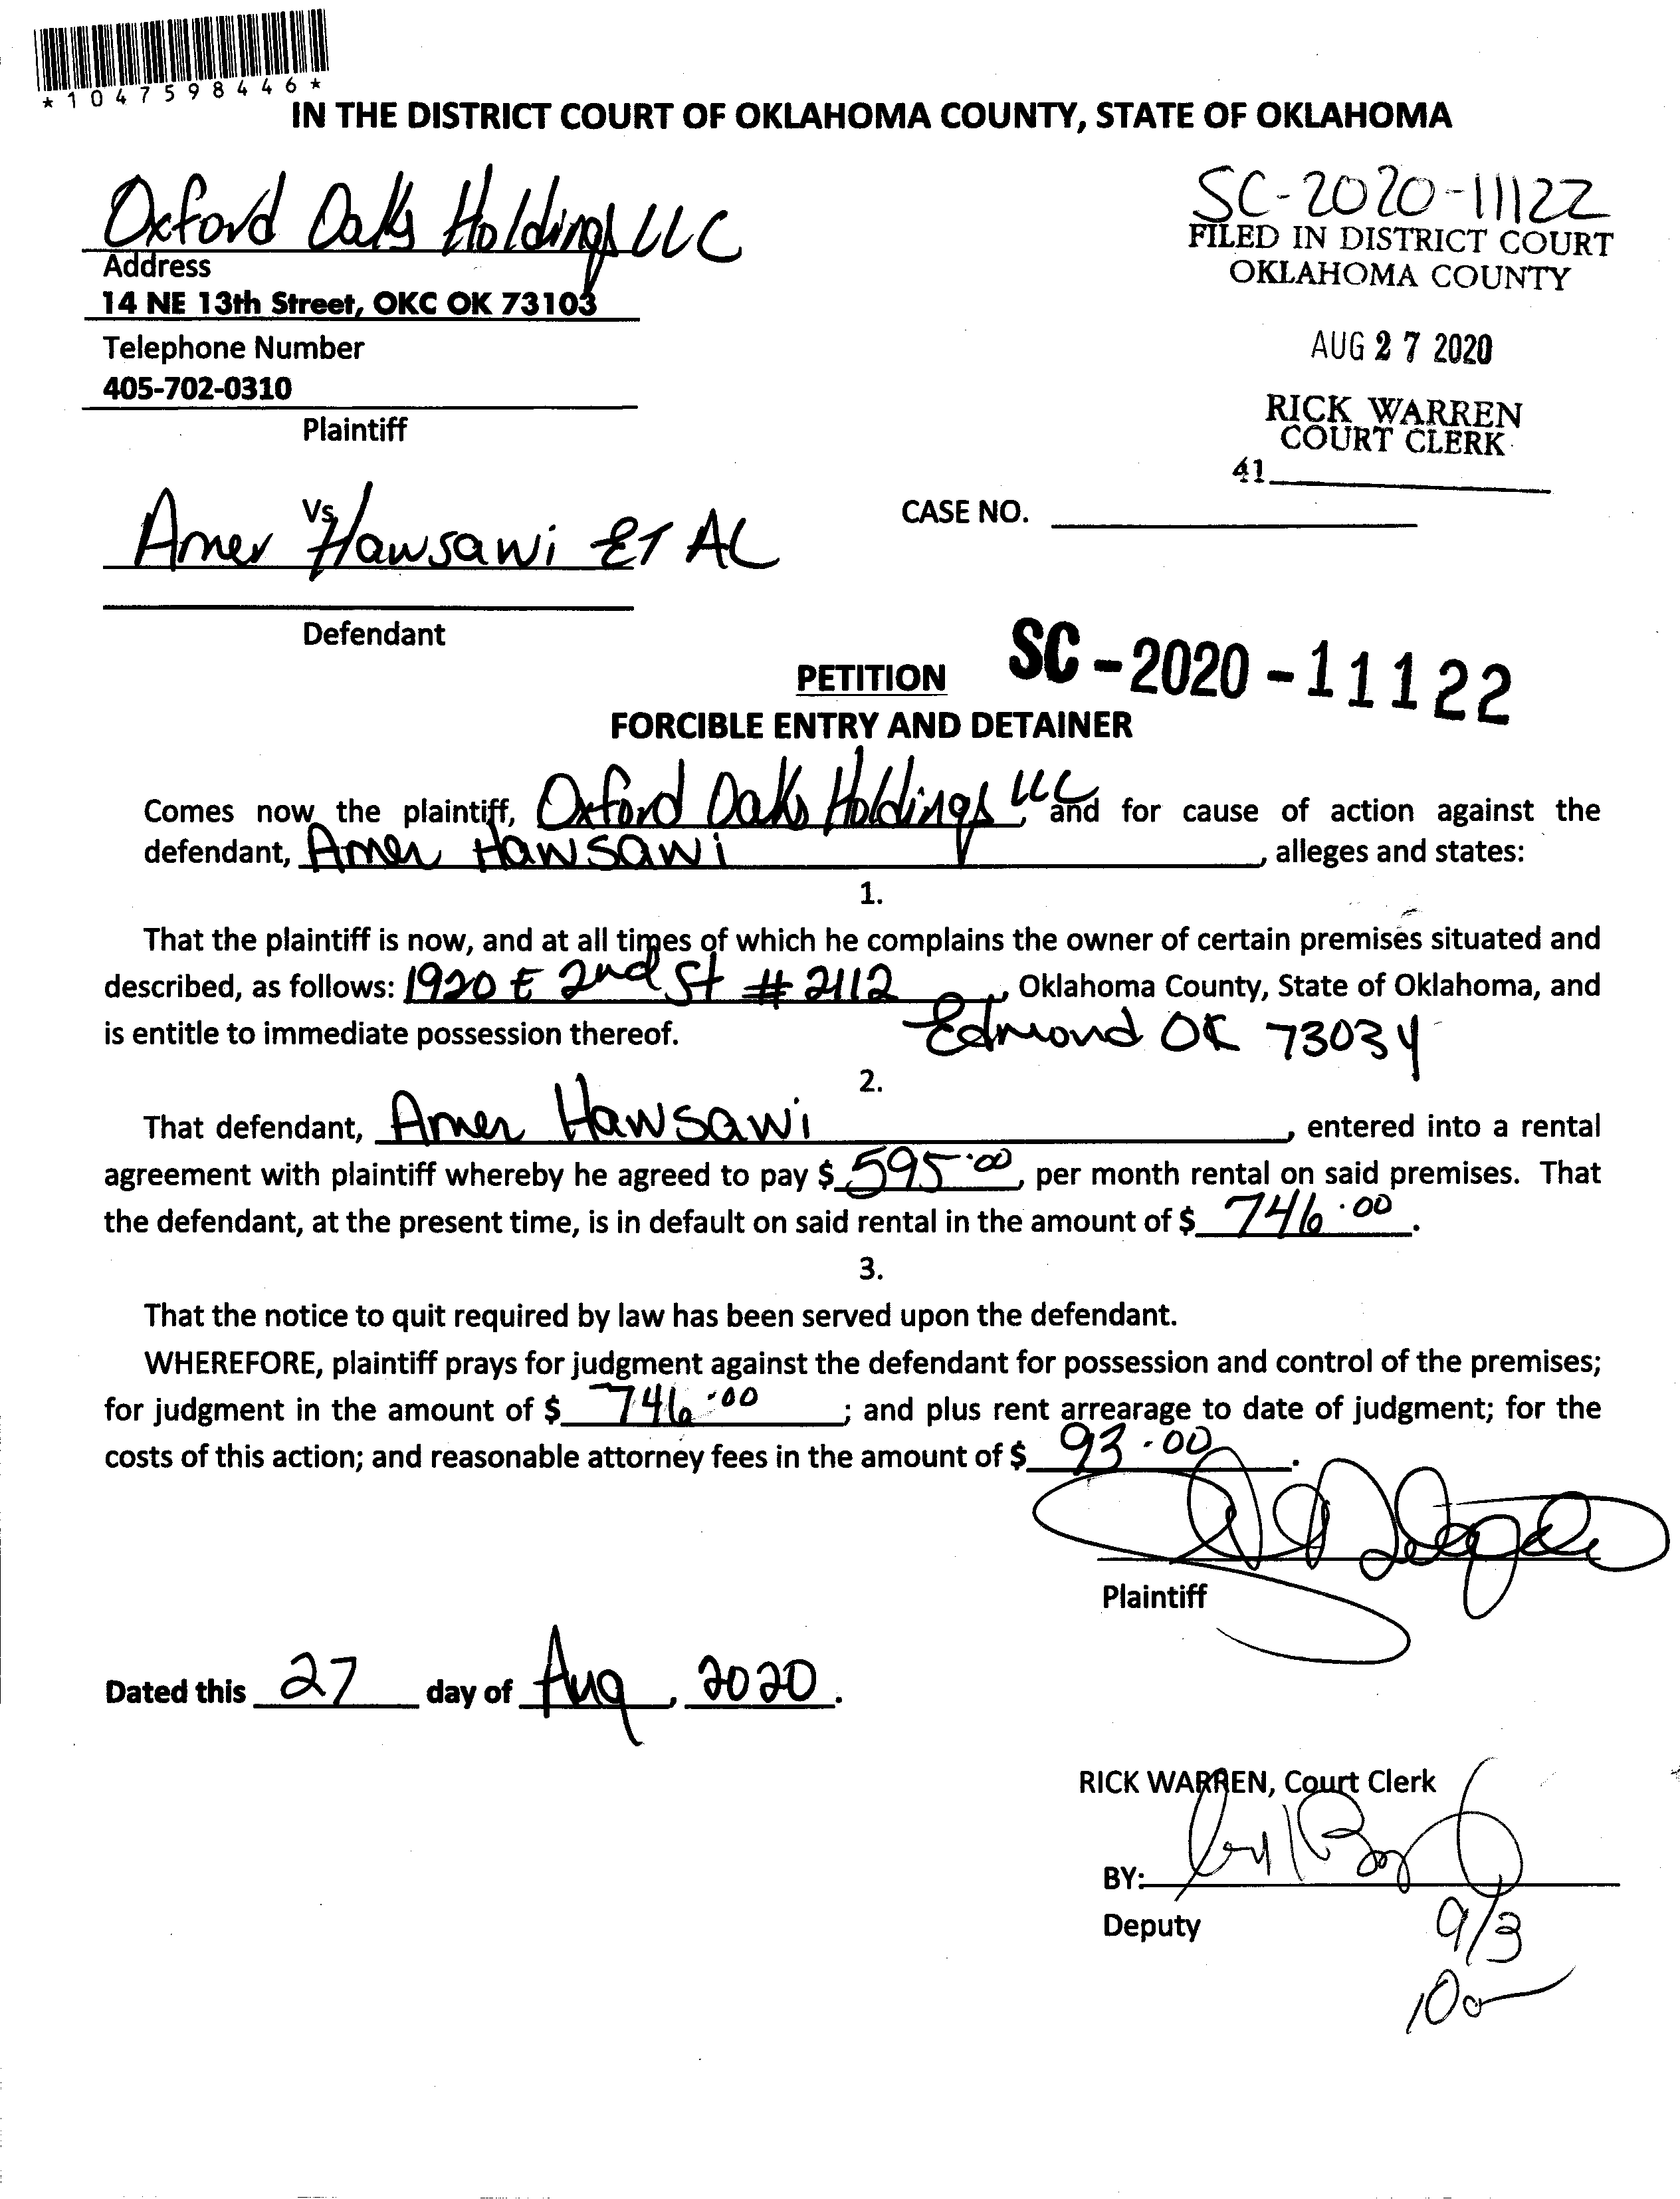 *1047598446*
IN THE DISTRICT COURT OF OKLAHOMA COUNTY, STATE OF OKLAHOMA
Oxford Oaks Holdings LLC
SC-2020-11122
FILED IN DISTRICT COURT
OKLAHOMA COUNTY
Address
14 NE 13th Street, OKC OK 73103
Telephone Number
405-702-0310
Plaintiff
AUG 27 2020
RICK WARREN
COURT CLERK
41
Vs.
Amer Hawsawi ET AL
CASE NO.
Defendant
SC-2020-11122
PETITION
FORCIBLE ENTRY AND DETAINER
Comes now the plaintiff, Oxford Oaks Holdings LLC, and for cause of action against the
defendant, Amer Hawsawi, alleges and states:
1.
That the plaintiff is now, and at all times of which he complains the owner of certain premises situated and
described, as follows: 1920 E 2nd St # 2112, Oklahoma County, State of Oklahoma, and
is entitle to immediate possession thereof. Edmond OK 73034
2.
That defendant, Amer Hawsawi, entered into a rental
agreement with plaintiff whereby he agreed to pay $ 595.00, per month rental on said premises. That
the defendant, at the present time, is in default on said rental in the amount of $ 746.00.
3.
That the notice to quit required by law has been served upon the defendant.
WHEREFORE, plaintiff prays for judgment against the defendant for possession and control of the premises;
for judgment in the amount of $ 746.00; and plus rent arrearage to date of judgment; for the
costs of this action; and reasonable attorney fees in the amount of $ 93.00.
Plaintiff
Dated this 27 day of Aug, 2020.
RICK WARREN, Court Clerk
BY:
Deputy
9/3